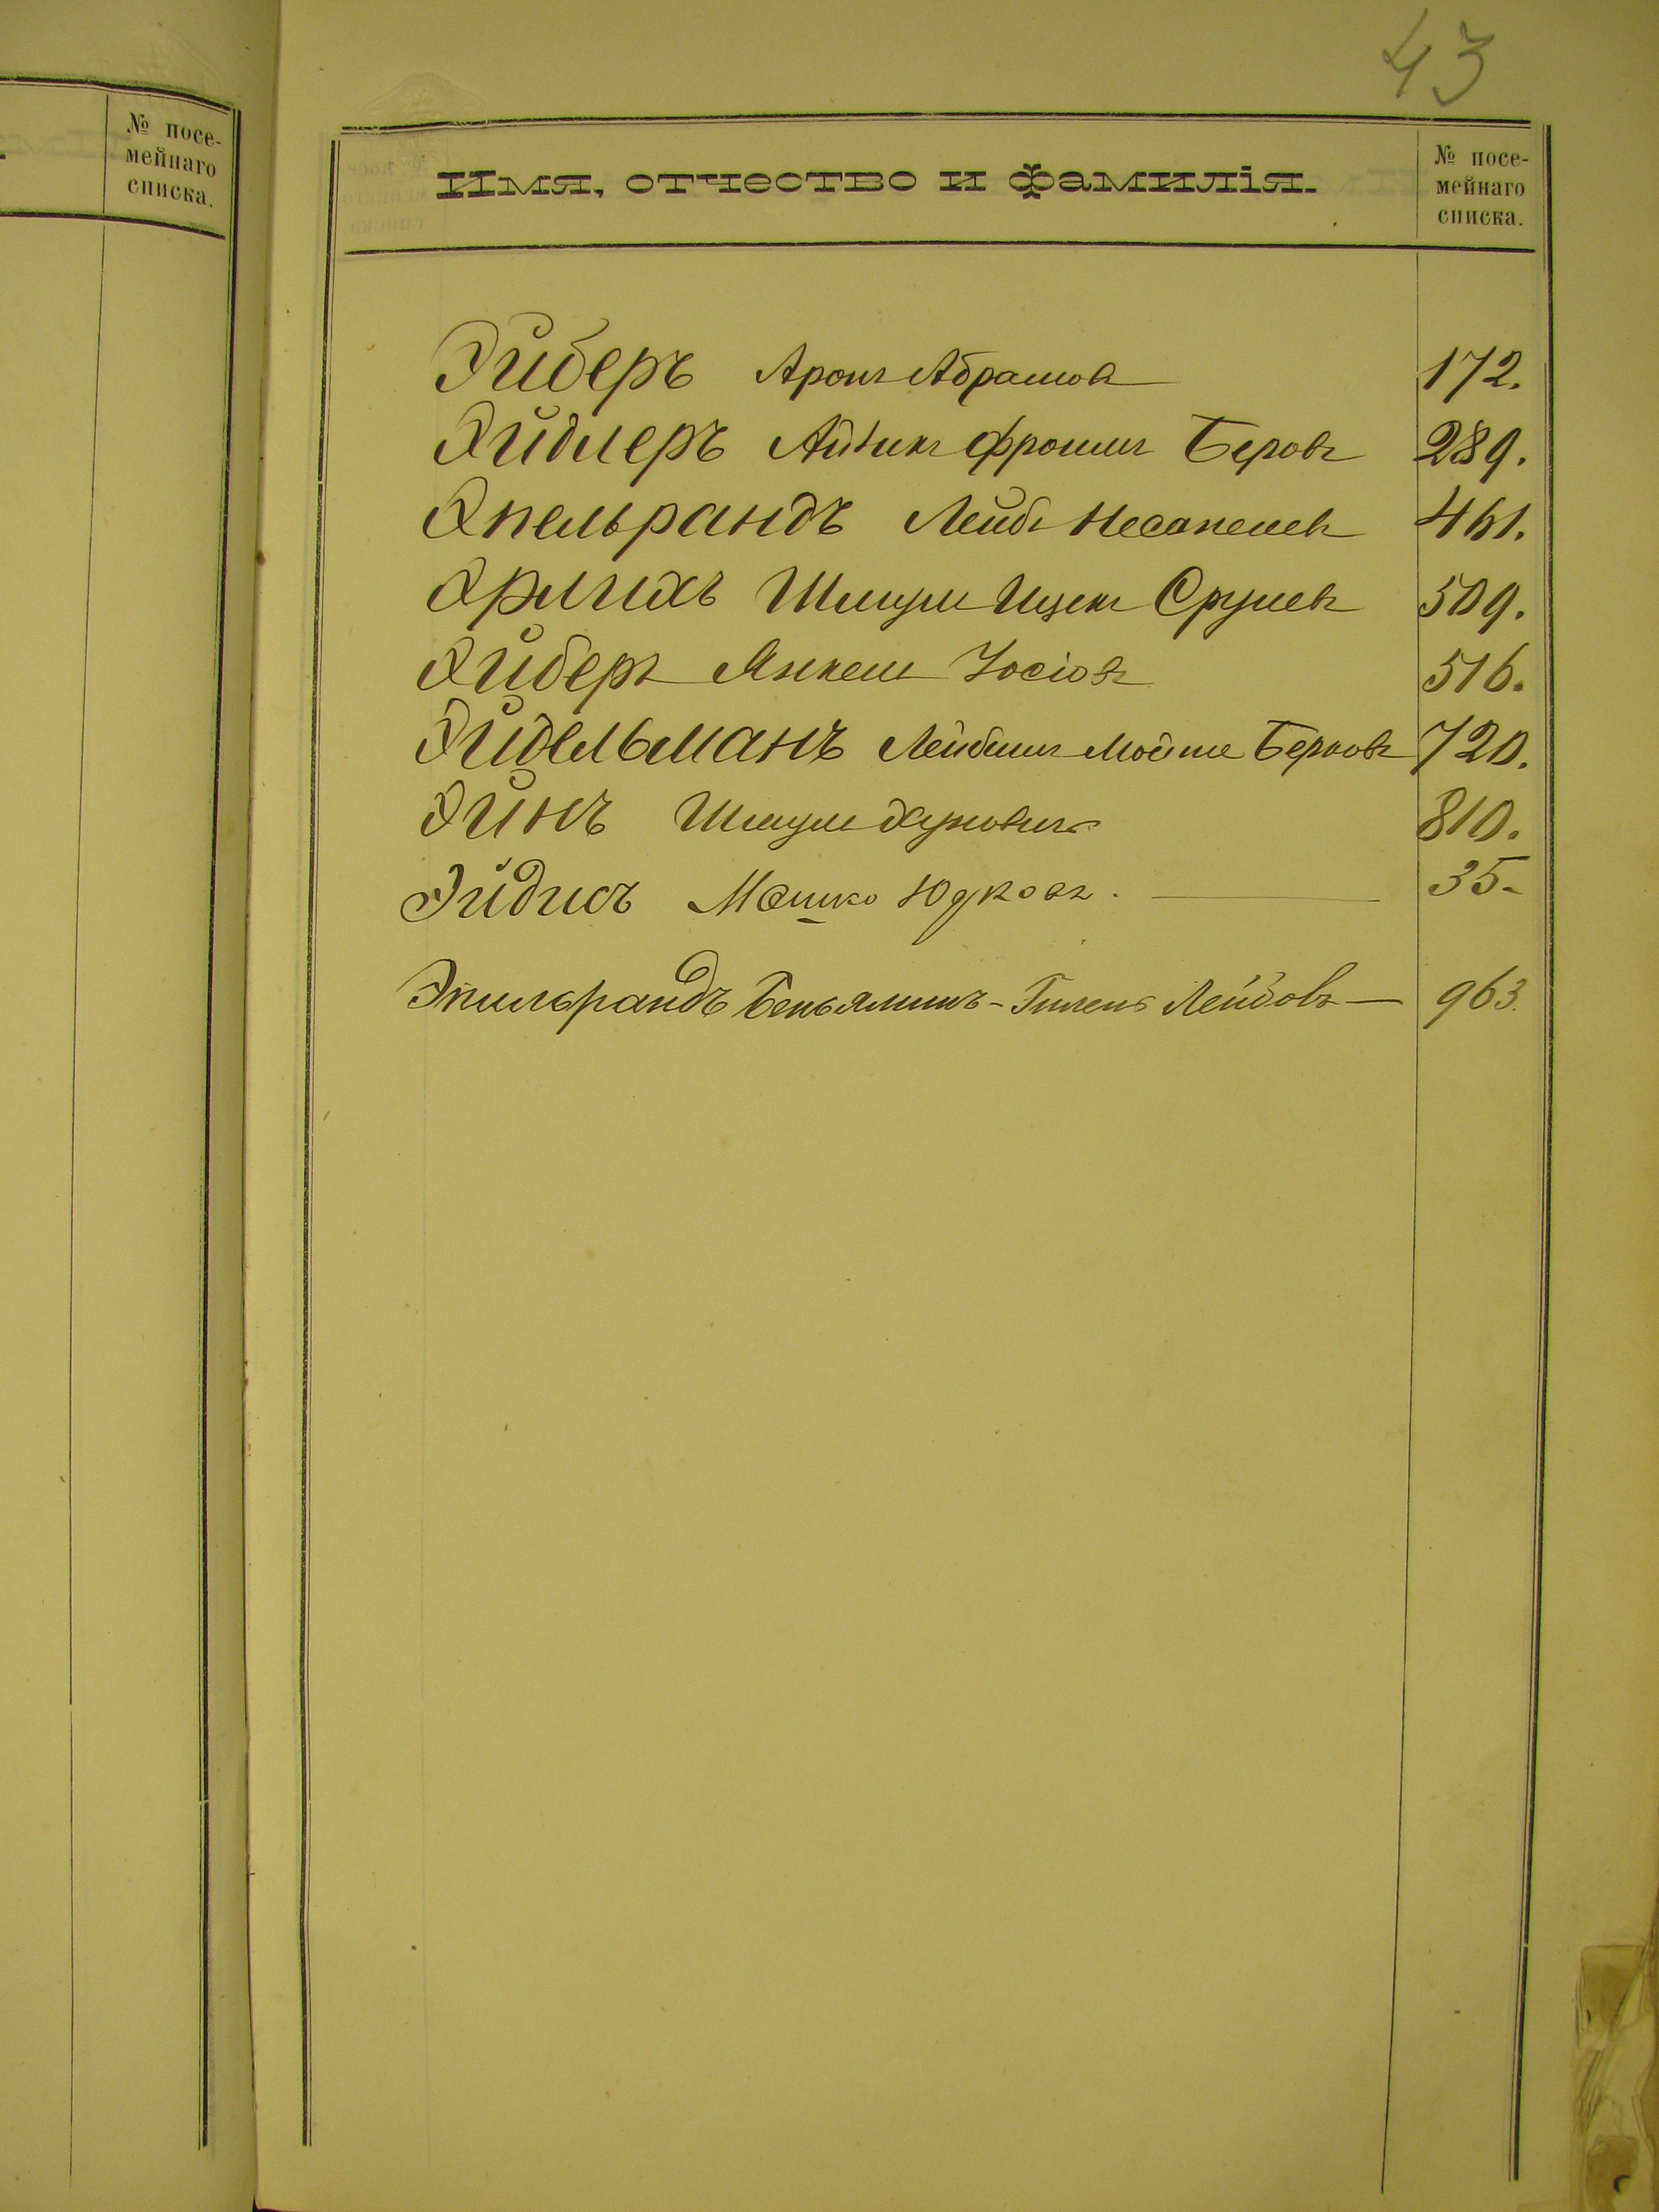 43
№ посе-
мейнаго
списка.
Имя, отчество и фамилія.
№ посе-
мейнаго
списка.
Эйберъ Аронъ Абрамовъ 172.
Эйдлеръ Фроимъ Беровъ 289.
Эпельрандъ Лейбъ 461.
Эрлихъ Шмуль Ицекъ Срулевъ 509.
Эйберъ Янкель Іосіовъ 516.
Эйдельманъ Лейбишъ Мойше Берковъ 720.
Эйнъ Шмуль 810.
Эйдисъ Мошко Юдковъ. 35.
Эпильрандъ Беньяминъ- Лейбовъ — 963.